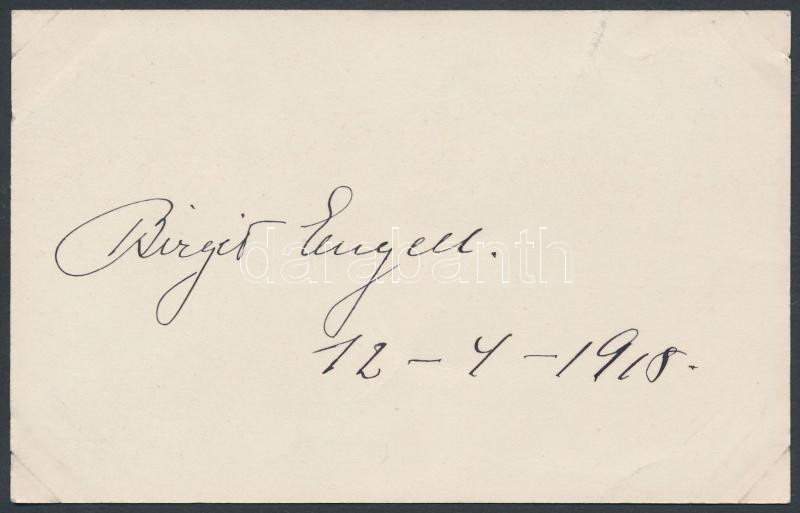 Birgit Engell.
darabanth
12 - 4 - 1918.